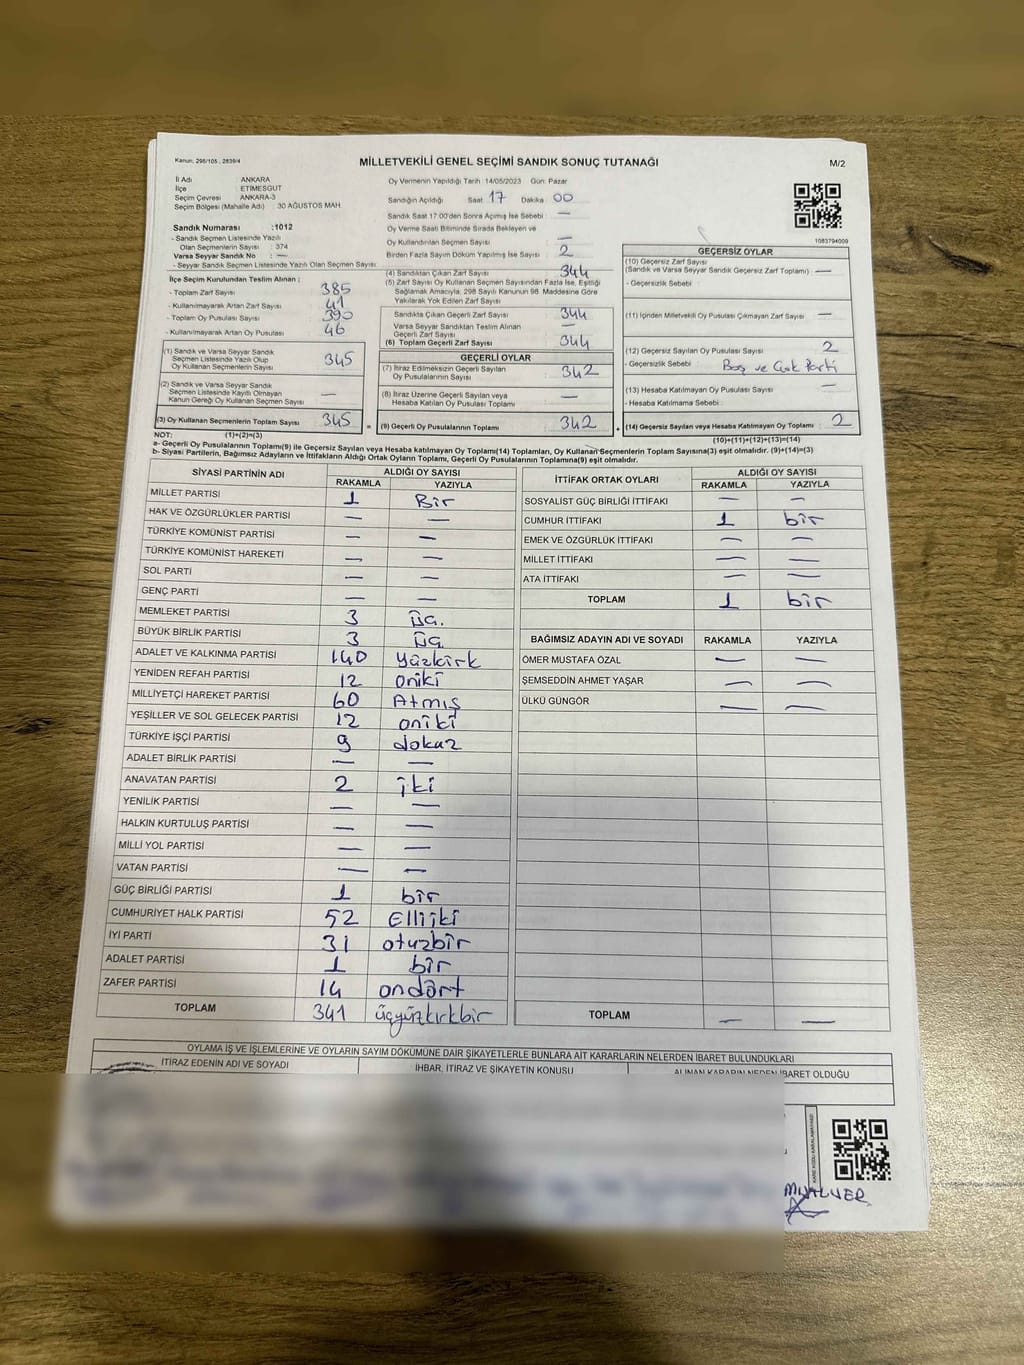 Kanun; 298/105 , 2839/4
MİLLETVEKİLİ GENEL SEÇİMİ SANDIK SONUÇ TUTANAĞI
M/2
İl Adı ANKARA
İlçe ETİMESGUT
Seçim Çevresi ANKARA-3
Seçim Bölgesi (Mahalle Adı) 30 AĞUSTOS MAH.
Sandık Numarası :1012
- Sandık Seçmen Listesinde Yazılı
Olan Seçmenlerin Sayısı : 374
Varsa Seyyar Sandık No : —
- Seyyar Sandık Seçmen Listesinde Yazılı Olan Seçmen Sayısı:
Oy Vermenin Yapıldığı Tarih 14/05/2023 Gün: Pazar
Sandığın Açıldığı Saat 17 Dakika 00
Sandık Saat 17:00'den Sonra Açılmış İse Sebebi : —
Oy Verme Saati Bitiminde Sırada Bekleyen ve
Oy Kullandırılan Seçmen Sayısı : —
Birden Fazla Sayım Döküm Yapılmış İse Sayısı : 2
1083794009
İlçe Seçim Kurulundan Teslim Alınan :
- Toplam Zarf Sayısı : 385
- Kullanılmayarak Artan Zarf Sayısı : 41
- Toplam Oy Pusulası Sayısı : 390
- Kullanılmayarak Artan Oy Pusulası : 46
(1) Sandık ve Varsa Seyyar Sandık
Seçmen Listesinde Yazılı Olup
Oy Kullanan Seçmenlerin Sayısı : 345
(2) Sandık ve Varsa Seyyar Sandık
Seçmen Listesinde Kayıtlı Olmayan
Kanun Gereği Oy Kullanan Seçmen Sayısı : —
(3) Oy Kullanan Seçmenlerin Toplam Sayısı : 345
(1)+(2)=(3)
(4) Sandıktan Çıkan Zarf Sayısı : 344
(5) Zarf Sayısı Oy Kullanan Seçmen Sayısından Fazla İse, Eşitliği
Sağlamak Amacıyla, 298 Sayılı Kanunun 98. Maddesine Göre
Yakılarak Yok Edilen Zarf Sayısı : —
Sandıkta Çıkan Geçerli Zarf Sayısı : 344
Varsa Seyyar Sandıktan Teslim Alınan
Geçerli Zarf Sayısı : —
(6) Toplam Geçerli Zarf Sayısı : 344
GEÇERLİ OYLAR
(7) İtiraz Edilmeksizin Geçerli Sayılan
Oy Pusulalarının Sayısı : 342
(8) İtiraz Üzerine Geçerli Sayılan veya
Hesaba Katılan Oy Pusulası Toplamı : —
= (9) Geçerli Oy Pusulalarının Toplamı : 342
GEÇERSİZ OYLAR
(10) Geçersiz Zarf Sayısı
(Sandık ve Varsa Seyyar Sandık Geçersiz Zarf Toplamı) : —
- Geçersizlik Sebebi :
(11) İçinden Milletvekili Oy Pusulası Çıkmayan Zarf Sayısı : —
(12) Geçersiz Sayılan Oy Pusulası Sayısı : 2
- Geçersizlik Sebebi : Boş ve Çok Parti
(13) Hesaba Katılmayan Oy Pusulası Sayısı : —
- Hesaba Katılmama Sebebi :
+ (14) Geçersiz Sayılan veya Hesaba Katılmayan Oy Toplamı : 2
(10)+(11)+(12)+(13)=(14)
NOT:
a- Geçerli Oy Pusulalarının Toplamı(9) ile Geçersiz Sayılan veya Hesaba katılmayan Oy Toplamı(14) Toplamları, Oy Kullanan Seçmenlerin Toplam Sayısına(3) eşit olmalıdır. (9)+(14)=(3)
b- Siyasi Partilerin, Bağımsız Adayların ve İttifakların Aldığı Ortak Oyların Toplamı, Geçerli Oy Pusulalarının Toplamına(9) eşit olmalıdır.
SİYASİ PARTİNİN ADI ALDIĞI OY SAYISI
RAKAMLA YAZIYLA
MİLLET PARTİSİ 1 Bir
HAK VE ÖZGÜRLÜKLER PARTİSİ — —
TÜRKİYE KOMÜNİST PARTİSİ — —
TÜRKİYE KOMÜNİST HAREKETİ — —
SOL PARTİ — —
GENÇ PARTİ — —
MEMLEKET PARTİSİ 3 Üç.
BÜYÜK BİRLİK PARTİSİ 3 Üç
ADALET VE KALKINMA PARTİSİ 140 Yüzkırk
YENİDEN REFAH PARTİSİ 12 oniki
MİLLİYETÇİ HAREKET PARTİSİ 60 Atmış
YEŞİLLER VE SOL GELECEK PARTİSİ 12 oniki
TÜRKİYE İŞÇİ PARTİSİ 9 dokuz
ADALET BİRLİK PARTİSİ — —
ANAVATAN PARTİSİ 2 iki
YENİLİK PARTİSİ — —
HALKIN KURTULUŞ PARTİSİ — —
MİLLİ YOL PARTİSİ — —
VATAN PARTİSİ — —
GÜÇ BİRLİĞİ PARTİSİ 1 bir
CUMHURİYET HALK PARTİSİ 52 Elliiki
İYİ PARTİ 31 otuzbir
ADALET PARTİSİ 1 bir
ZAFER PARTİSİ 14 ondört
TOPLAM 341 üçyüzkırkbir
İTTİFAK ORTAK OYLARI ALDIĞI OY SAYISI
RAKAMLA YAZIYLA
SOSYALİST GÜÇ BİRLİĞİ İTTİFAKI — —
CUMHUR İTTİFAKI 1 bir
EMEK VE ÖZGÜRLÜK İTTİFAKI — —
MİLLET İTTİFAKI — —
ATA İTTİFAKI — —
TOPLAM 1 bir
BAĞIMSIZ ADAYIN ADI VE SOYADI RAKAMLA YAZIYLA
ÖMER MUSTAFA ÖZAL — —
ŞEMSEDDİN AHMET YAŞAR — —
ÜLKÜ GÜNGÖR — —
TOPLAM — —
OYLAMA İŞ VE İŞLEMLERİNE VE OYLARIN SAYIM DÖKÜMÜNE DAİR ŞİKAYETLERLE BUNLARA AİT KARARLARIN NELERDEN İBARET BULUNDUKLARI
İTİRAZ EDENİN ADI VE SOYADI İHBAR, İTİRAZ VE ŞİKAYETİN KONUSU ALINAN KARARIN NEDEN İBARET OLDUĞU